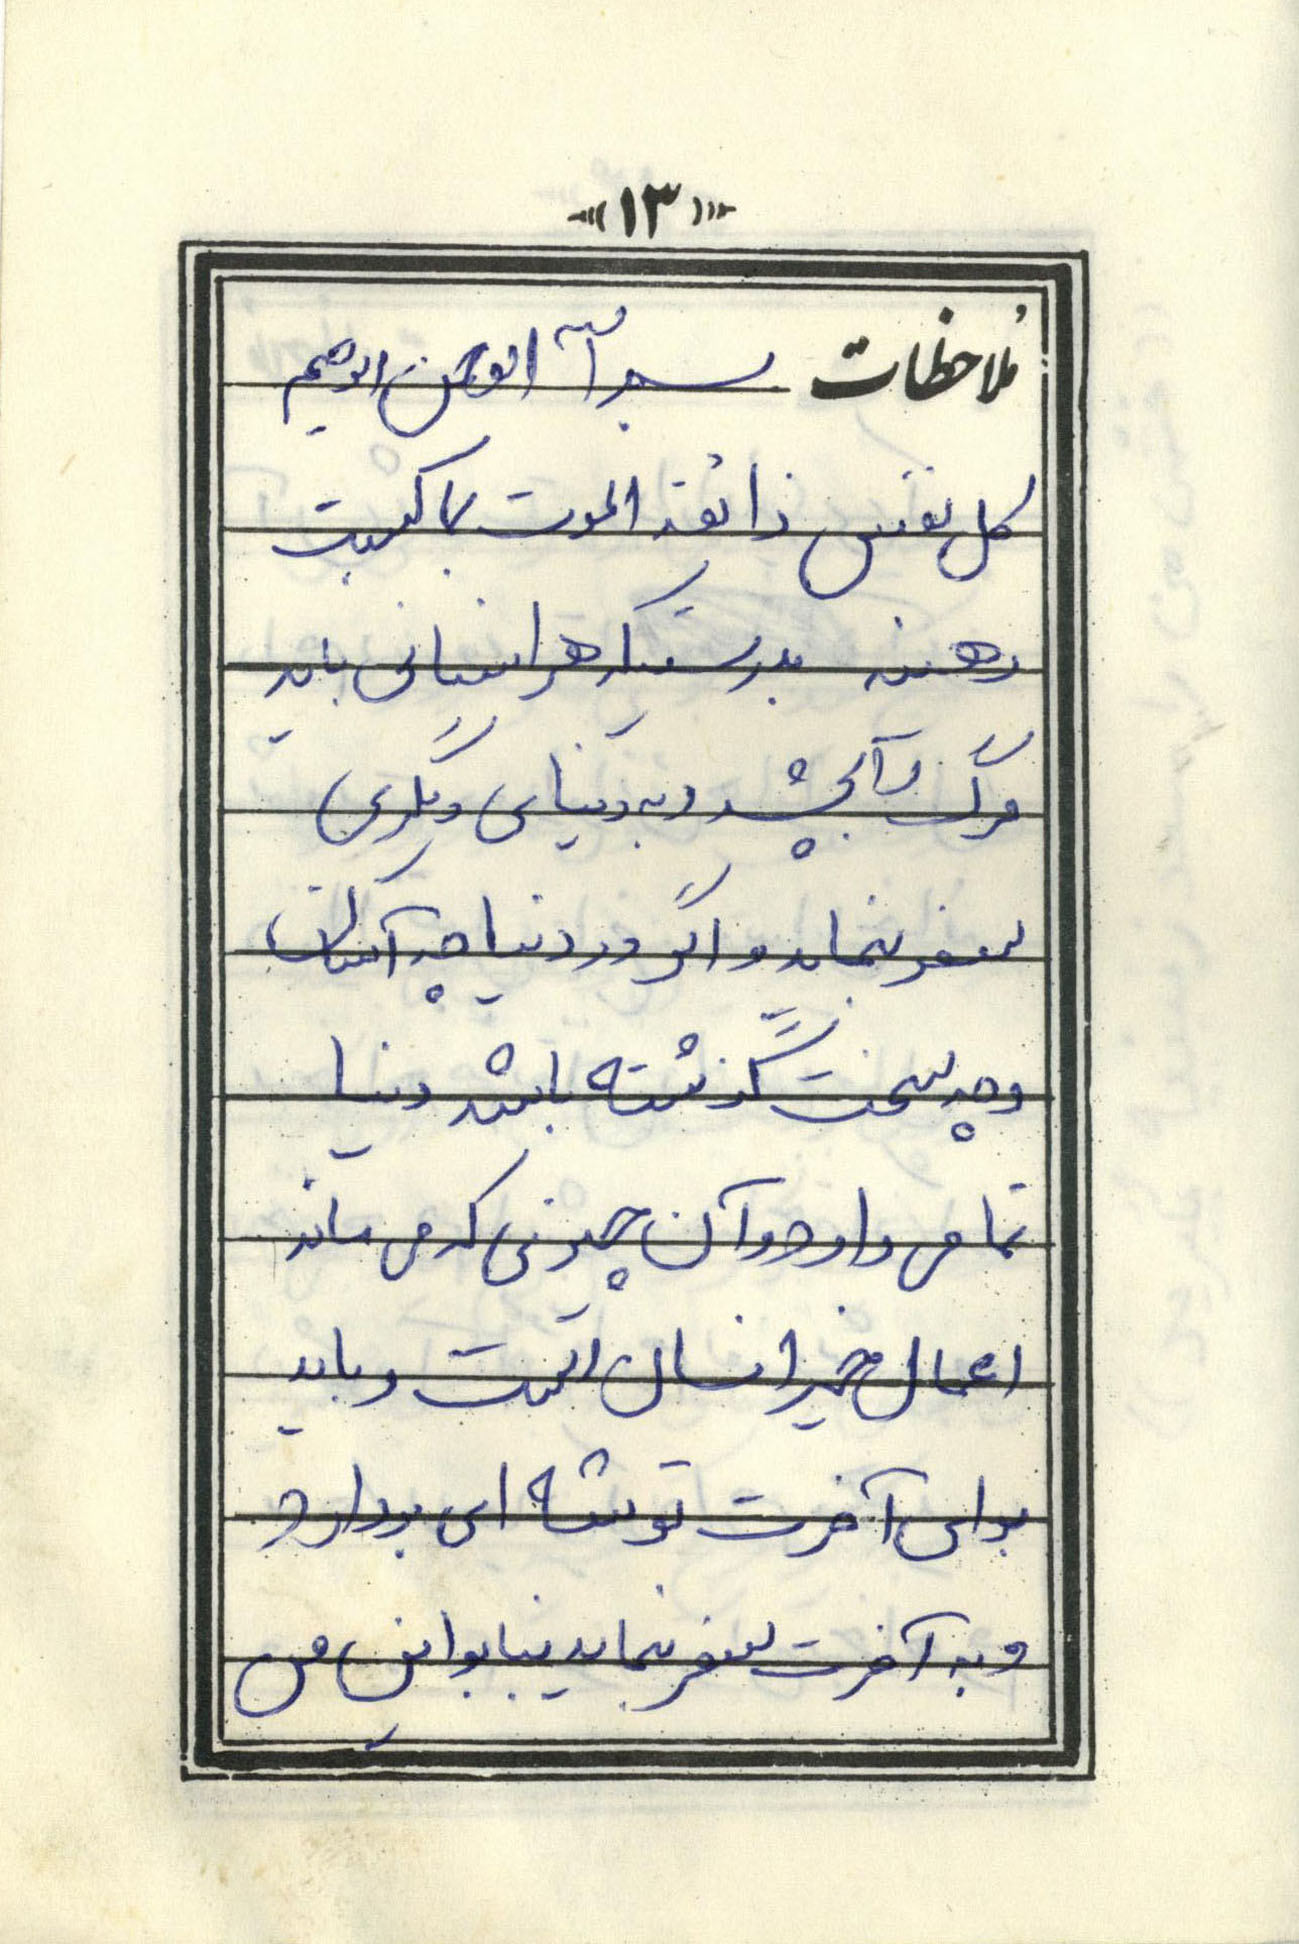 «۱۳»
ملاحظات بسم الله الرحمن الرحیم
کل نفس ذائقة الموت بما کسبت
رهینه بدرستیکه هر انسانی باید
مرگ را بچشد و به دنیای دیگری
سفر نماید و اگر در دنیا چه آسان
و چه سخت گذشته باشد دنیا
تمامی دارد و آن چیزی که می ماند
اعمال خیر انسان است و باید
برای آخرت توشه ای بردارد
و به آخرت سفر نماید بنابراین من